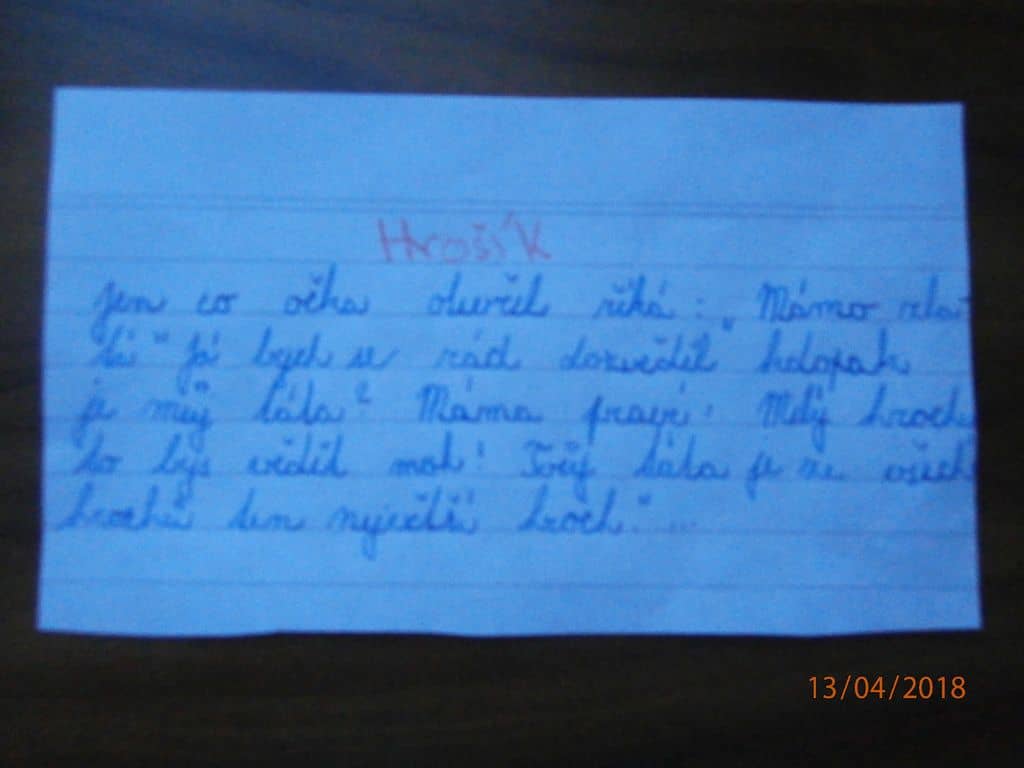 Hrošík
Jen co očka otevřel říká: „Mámo zla-
tá" Já bych se rád dozvěděl" kdopak
je můj táta? Máma praví: Milý hroch
to bys věděl moh! Tvůj táta je ze všech
hrochů ten největší hroch."...
13/04/2018